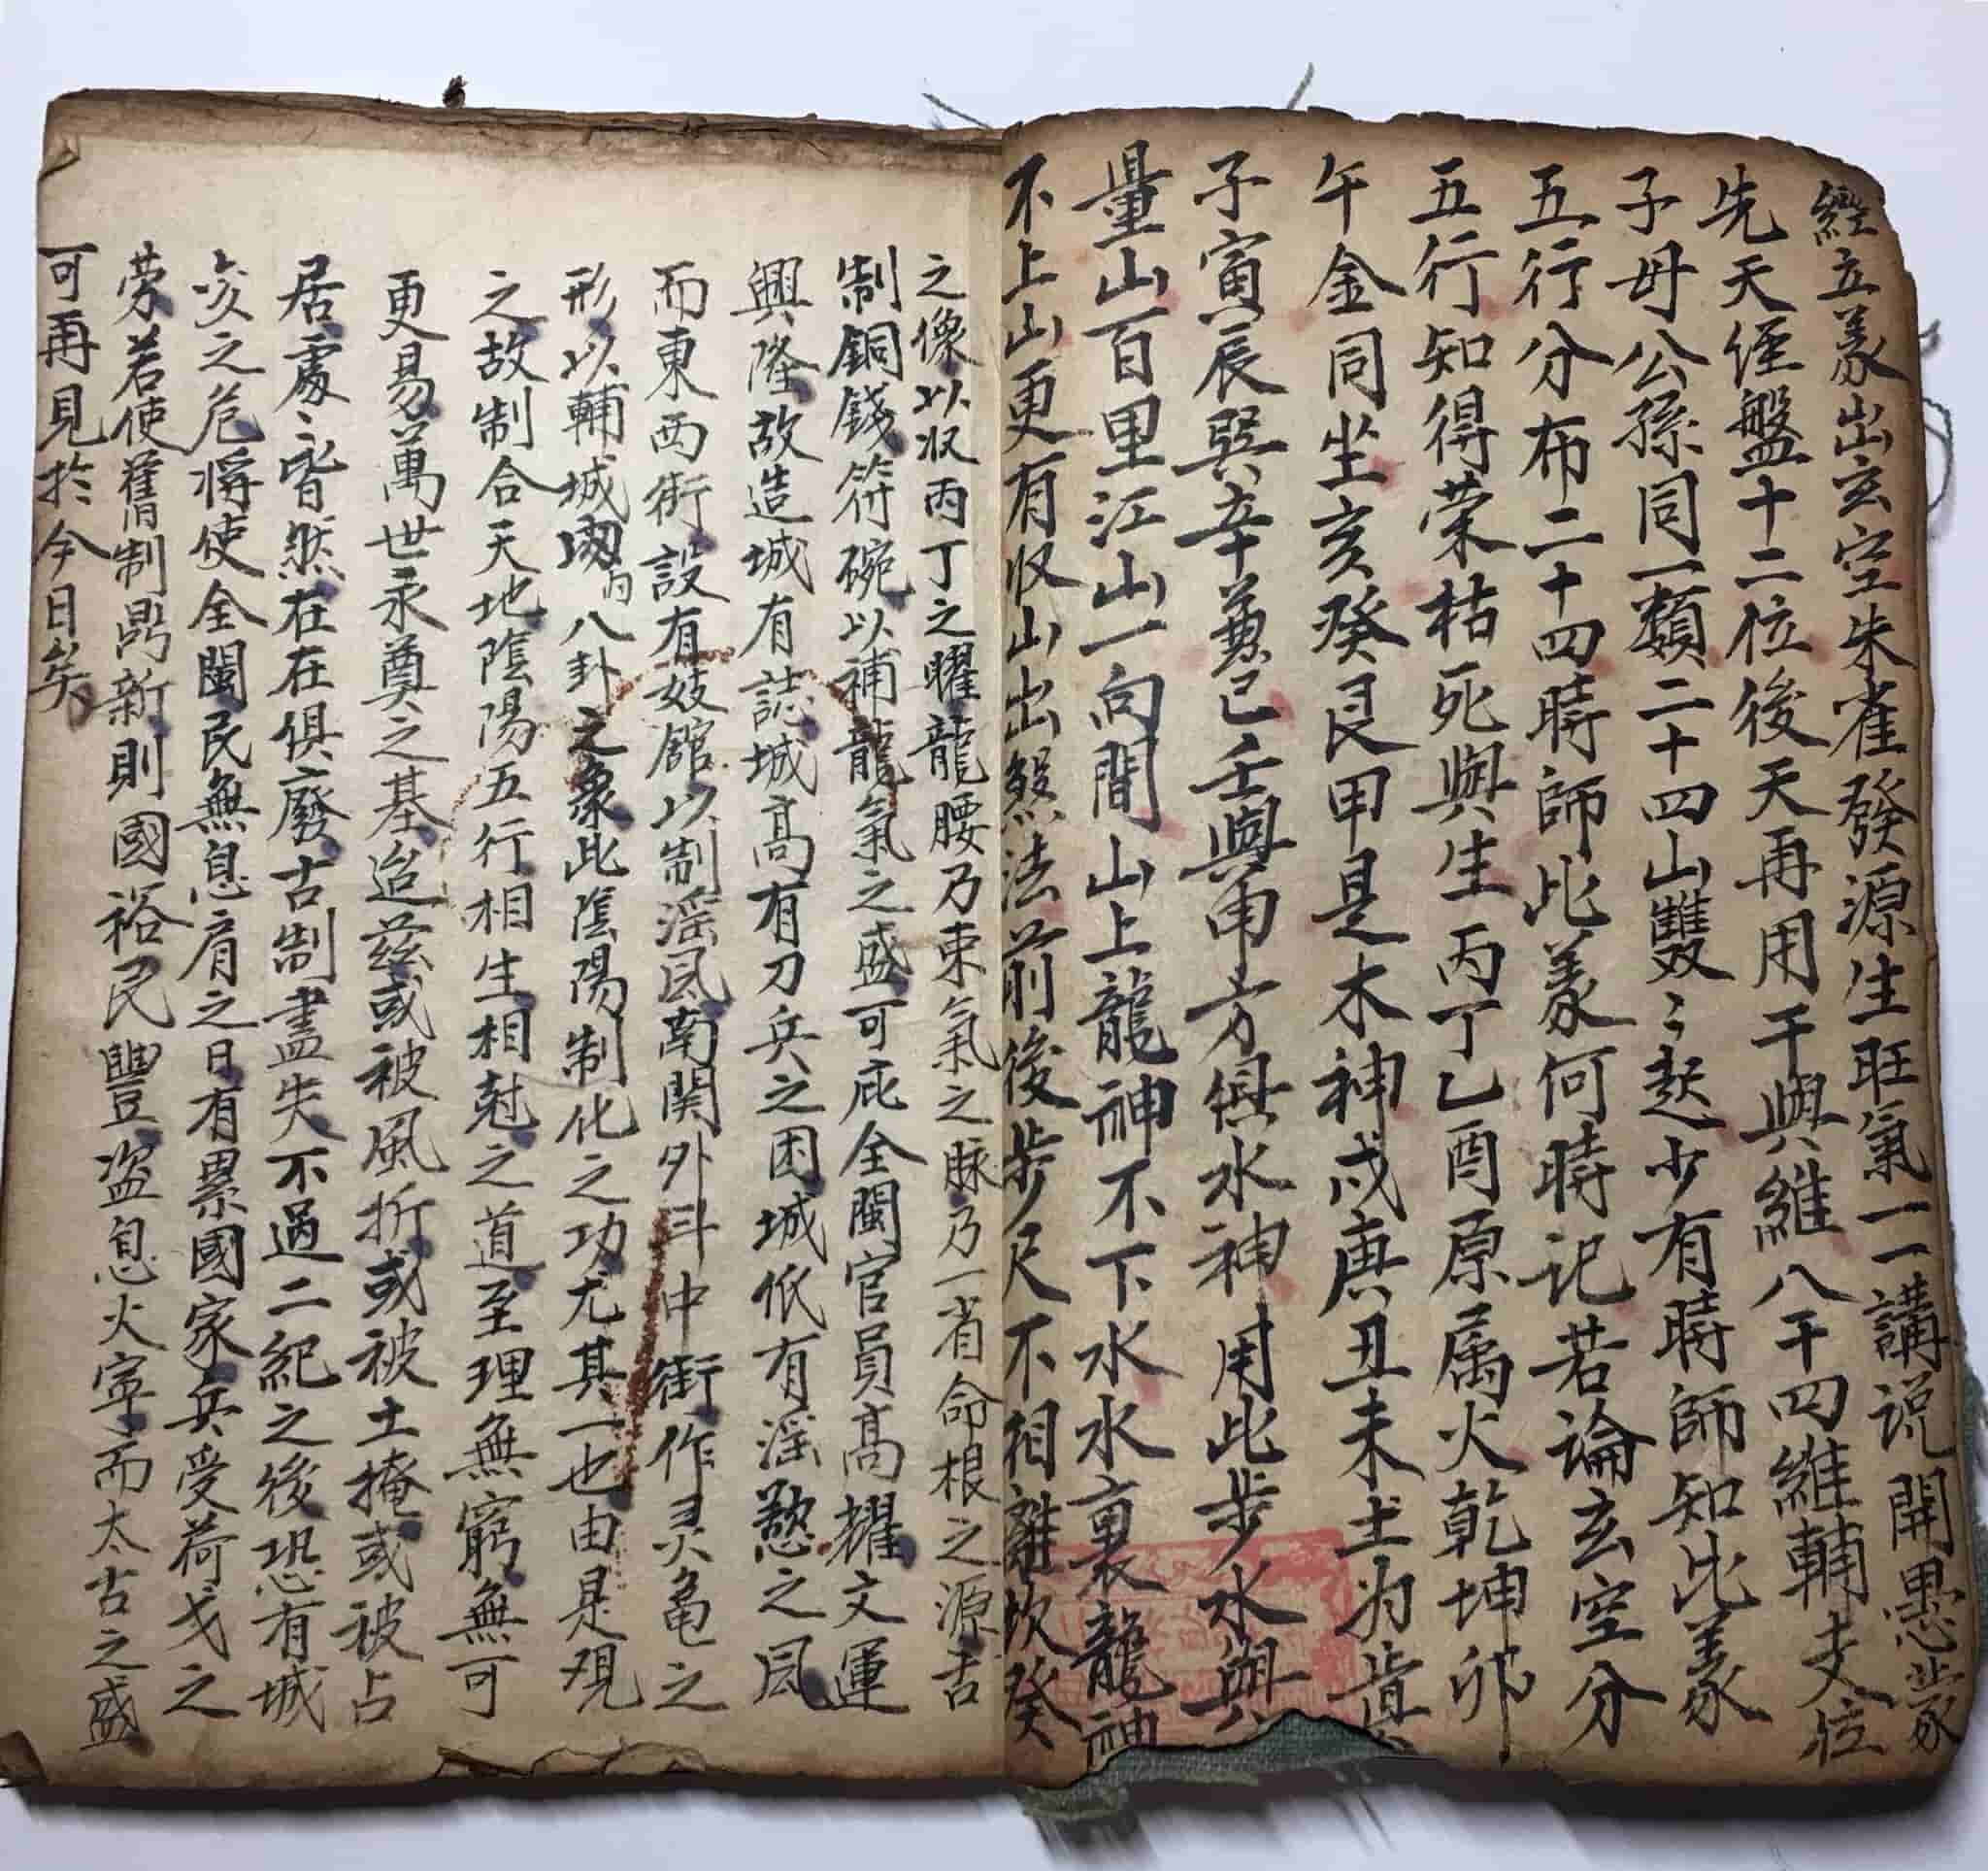 經立義出玄空朱雀發源生旺氣一一講説開愚蒙
先天徑盤十二位後天再用干與維八干四維輔支位
子母公孫同一類二十四山雙〻起少有時師知此義
五行分布二十四時師此義何時記若論玄空分
五行知得荣枯死與生丙丁乙酉原属火乾坤卯
午金同坐亥癸艮甲是木神戍庚丑未土为真
子寅辰巽辛兼已壬與申方俱水神用此步水與
量山百里江山一向間山上龍神不下水水裏龍神
不上山更有収山出煞法前後步尺不相離坎癸
之像以収丙丁之曜龍腰乃束氣之脉乃一省命根之源古
制銅錢符碗以補龍氣之盛可庇全閩官員高擢文運
興隆故造城有誌城高有刀兵之困城低有滛慾之風
而東西街設有妓舘以制滛風南関外斗中街作灵龟之
形以輔城內八卦之象此陰陽制化之功尤其一也由是观
之故制合天地陰陽五行相生相尅之道至理無窮無可
更易萬世永奠之基迨兹或被風折或被土掩或被占
居處〻皆然在在俱廢古制盡失不過二紀之後恐有城
之危將使全閩民無息肩之日有累國家兵受荷戈之
劳若使舊制鼎新則國裕民豐盗息火寧而太古之盛
可再見於今日矣